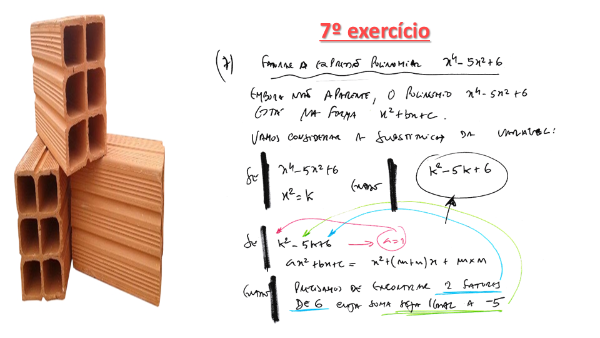 7º exercício
(7) FATORAR A EXPRESSÃO POLINOMIAL x⁴-5x²+6
EMBORA NÃO APARENTE, O POLINÔMIO x⁴-5x²+6
ESTÁ NA FORMA x²+bx+c.
VAMOS CONSIDERAR A SUBSTITUIÇÃO DA VARIÁVEL:
SE x⁴-5x²+6
x²=K
ENTÃO K²-5K+6
SE K²-5K+6 → a=1
ax²+bx+c = x²+(m+n)x + m×n
ENTÃO PRECISAMOS DE ENCONTRAR 2 FATORES
DE 6 CUJA SOMA SEJA IGUAL A -5